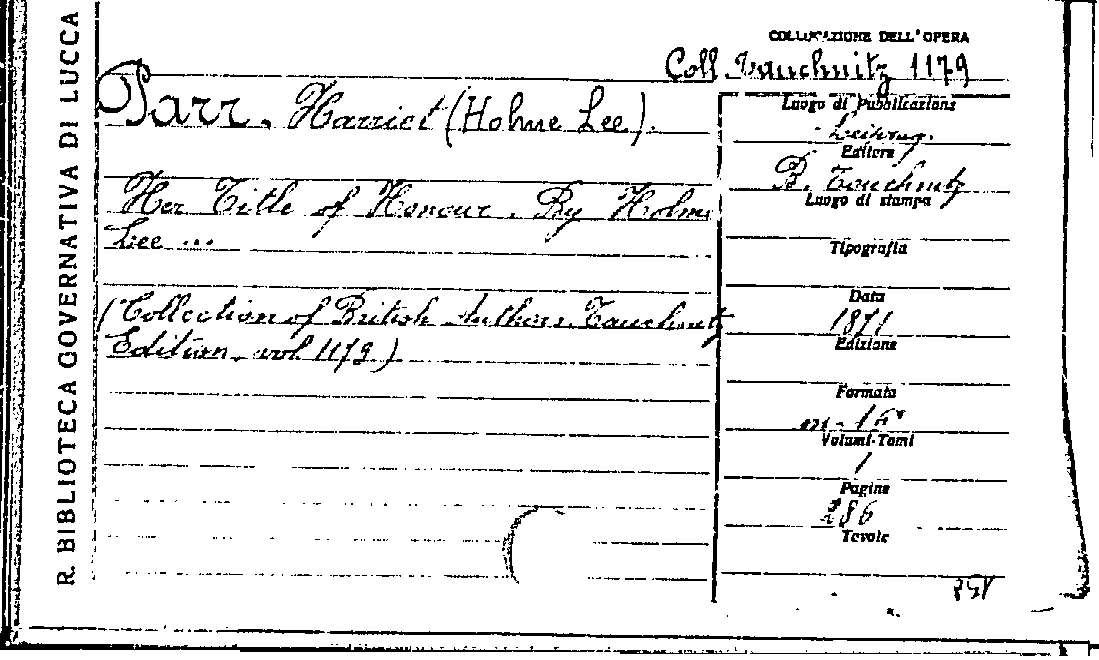 R. BIBLIOTECA GOVERNATIVA DI LUCCA
COLLOCAZIONE DELL'OPERA
Coll. Tauchnitz 1179
Parr. Harriet (Holme Lee).
Her Title of Honour. By Holme
Lee ...
(Collection of British Authors. Tauchnitz
Edition. vol 1179)
Luogo di Pubblicazione
Editore
B. Tauchnitz
Luogo di stampa
Tipografia
Data
1871
Edizione
Formato
in-16°
Volumi-Tomi
1
Pagine
286
Tavole